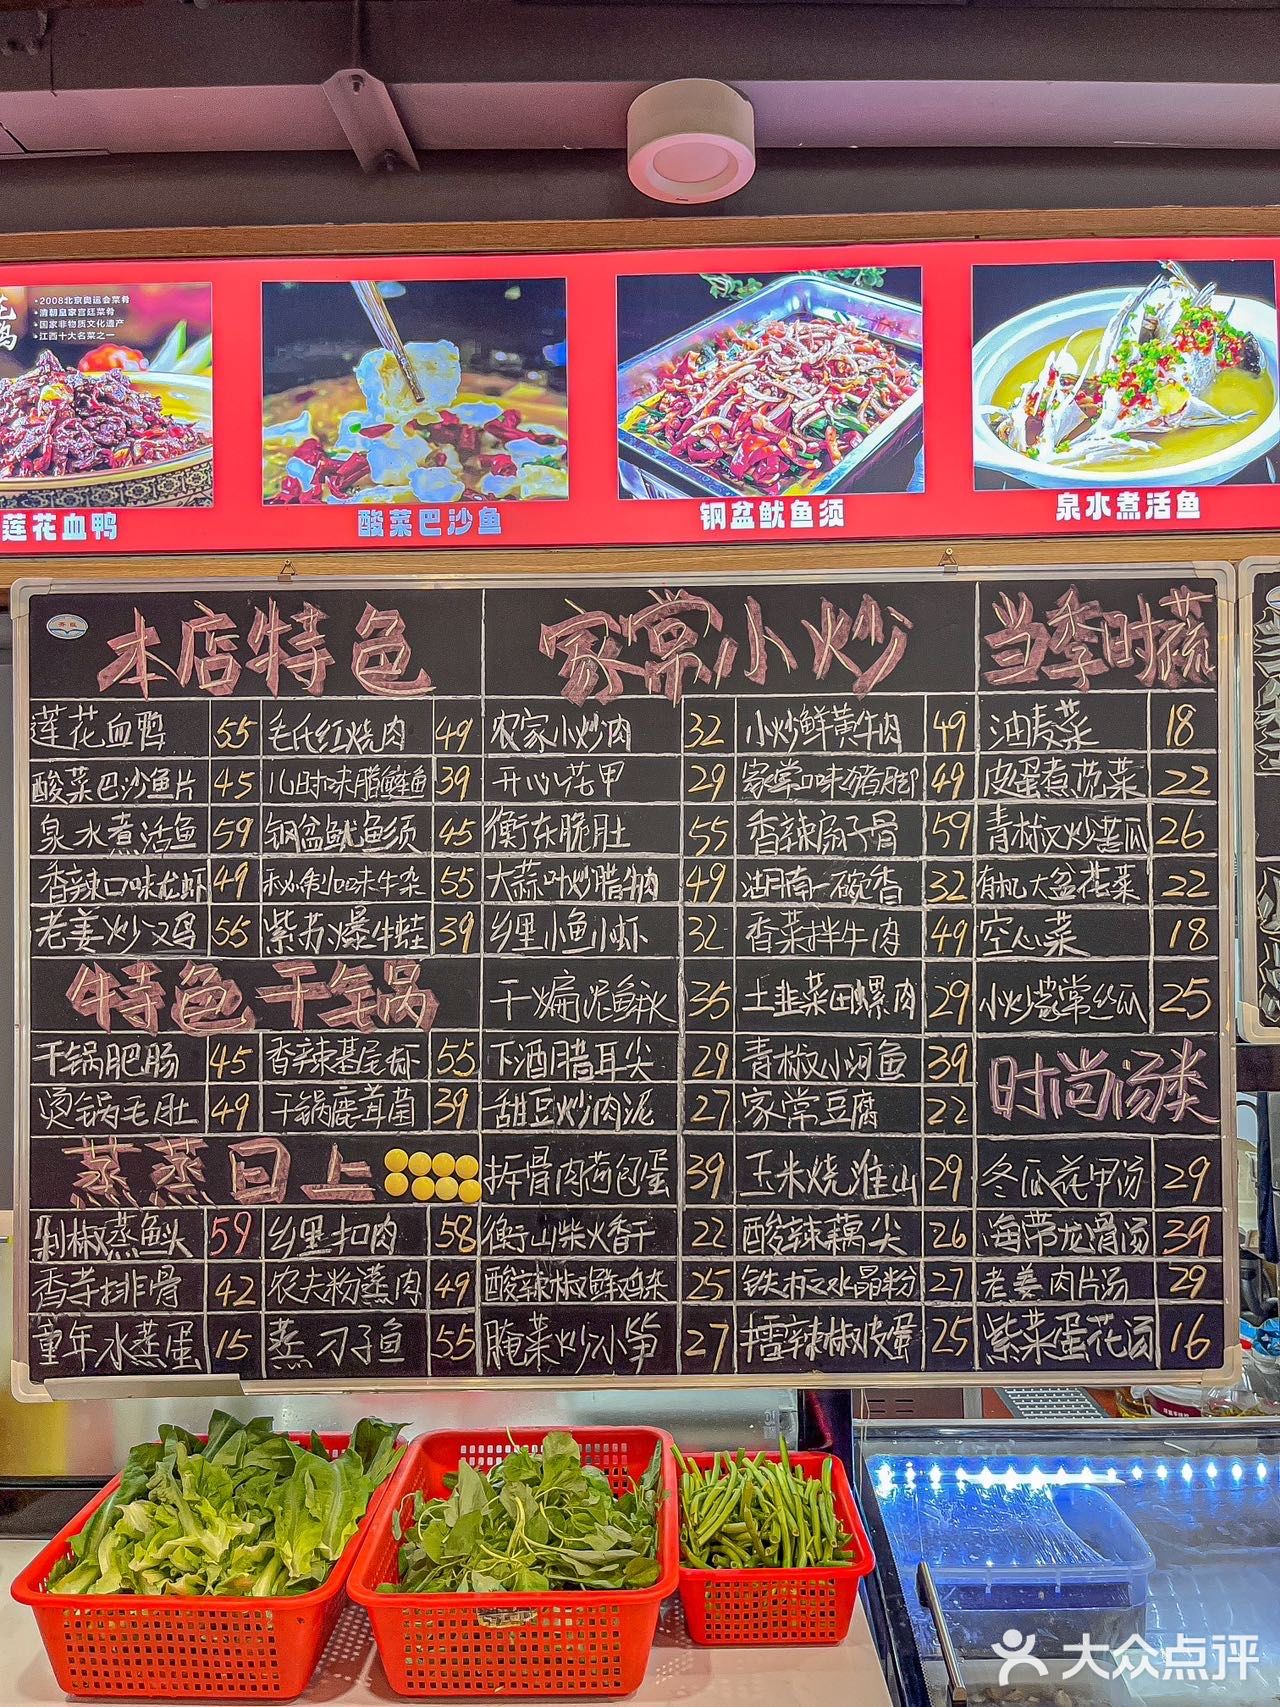 •2008北京奥运会菜肴
•清朝皇家宫廷菜肴
•国家非物质文化遗产
•江西十大名菜之一
莲花血鸭
酸菜巴沙鱼
钢盆鱿鱼须
泉水煮活鱼
本店特色
莲花血鸭 55 毛氏红烧肉 49
酸菜巴沙鱼片 45 儿时味腊鲢鱼 39
泉水煮活鱼 59 钢盆鱿鱼须 45
香辣口味龙虾 49 口味牛杂 55
老姜炒汉鸡 55 紫苏爆牛蛙 39
特色干锅
干锅肥肠 45 香辣基尾虾 55
烫锅毛肚 49 干锅鹿茸菌 39
蒸蒸日上
剁椒蒸鱼头 59 乡里扣肉 58
香芋排骨 42 农夫粉蒸肉 49
童年水蒸蛋 15 蒸刁子鱼 55
家常小炒
农家小炒肉 32 小炒鲜黄牛肉 49
开心花甲 29 家常口味猪脚 49
衡东脆肚 55 香辣扇子骨 59
大蒜叶炒腊牛肉 49 湖南一碗香 32
乡里小鱼小虾 32 香菜拌牛肉 49
干煸泥鳅 35 土韭菜田螺肉 29
下酒腊耳尖 29 青椒小河鱼 39
甜豆炒肉泥 27 家常豆腐 22
拆骨肉荷包蛋 39 玉米烧淮山 29
衡山柴火香干 22 酸辣藕尖 26
酸辣椒鲜鸡杂 25 铁板水晶粉 27
腌菜炒小笋 27 擂辣椒皮蛋 25
当季时蔬
油麦菜 18
皮蛋煮苋菜 22
青椒炒苦瓜 26
有机大盆花菜 22
空心菜 18
小炒家常丝瓜 25
时尚汤类
冬瓜花甲汤 29
海带龙骨汤 39
老姜肉片汤 29
紫菜蛋花汤 16
大众点评